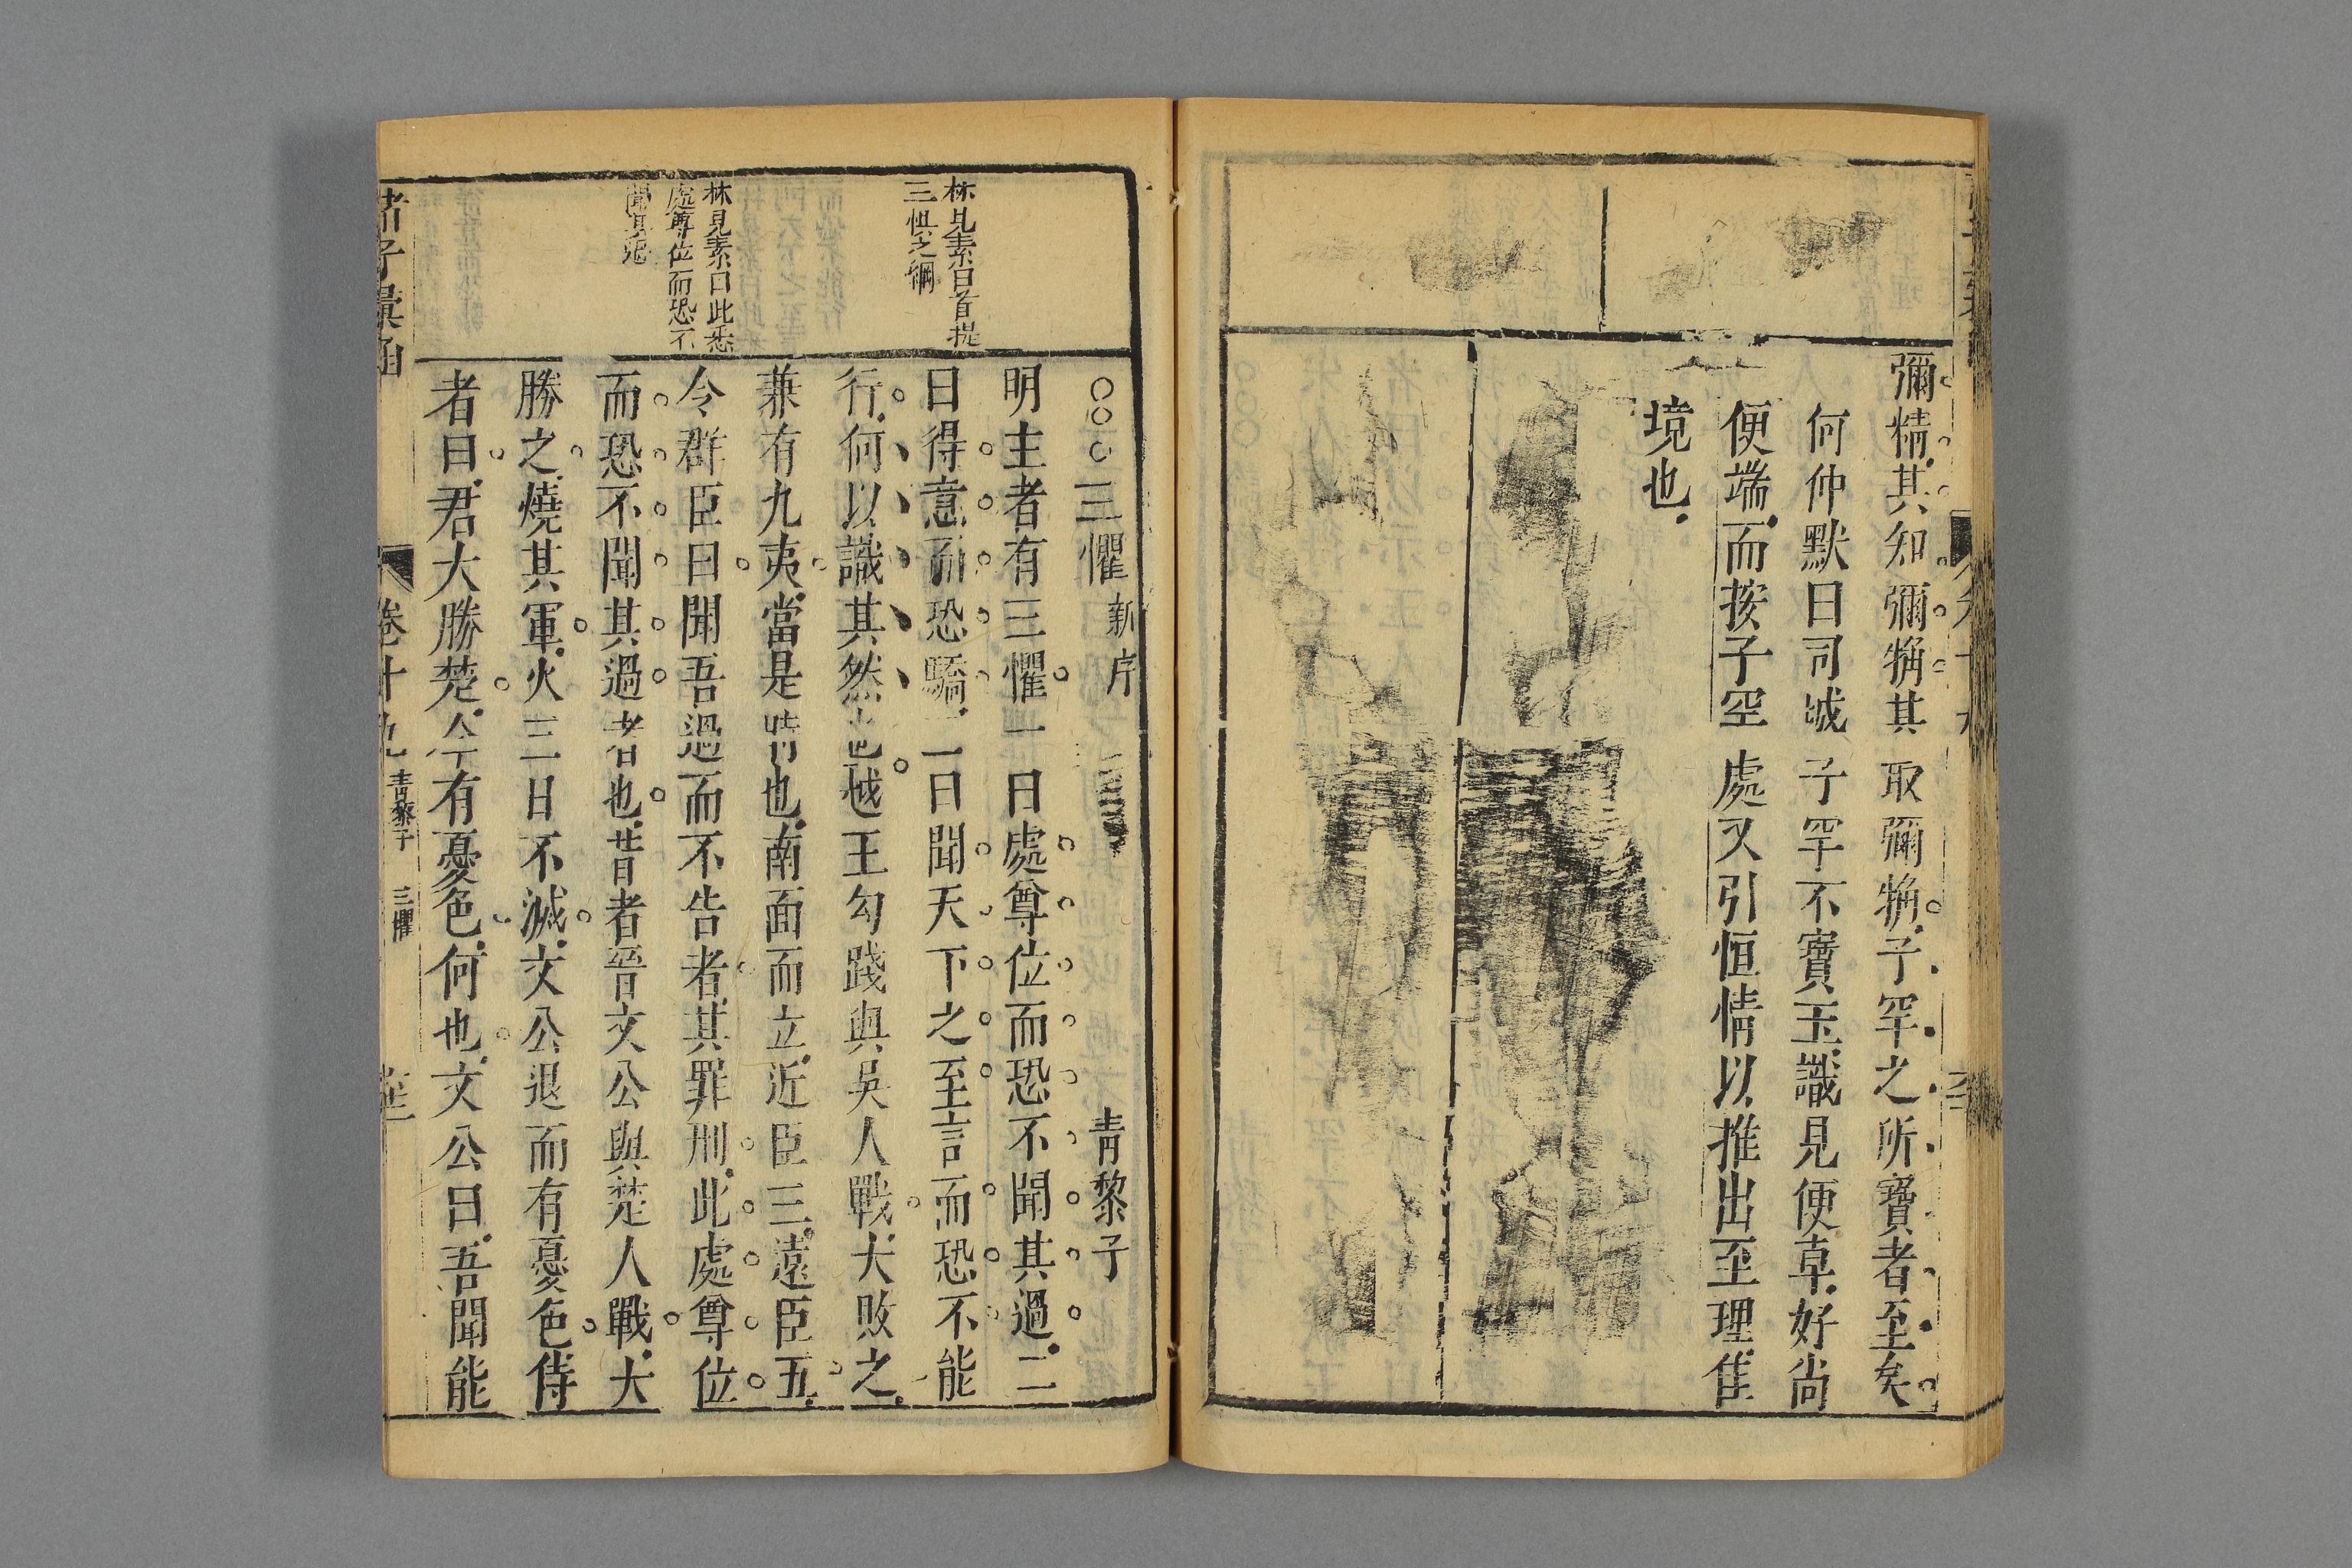 彌精其知彌觕其取彌觕子罕之所寶者至矣
何仲默曰司城子罕不寶玉識見便卓好尚
便端而按子罕處又引恒情以推出至理隹
境也
三懼 新序 青黎子
明主者有三懼一曰處尊位而恐不聞其過二
曰得意而恐驕一曰聞天下之至言而恐不能
行何以識其然也越王勾踐與吳人戰大敗之
兼有九夷當是時也南面而立近臣三遠臣五
令群臣曰聞吾過而不告者其罪刑此處尊位
而恐不聞其過者也昔者晉文公與楚人戰大
勝之燒其軍火三日不滅文公退而有憂色侍
者曰君大勝楚今有憂色何也文公曰吾聞能
林見素曰首提
三懼之綱
林見素曰此恐
處尊位而恐不
聞其過
諸子彙函 卷十九 青黎子 三懼